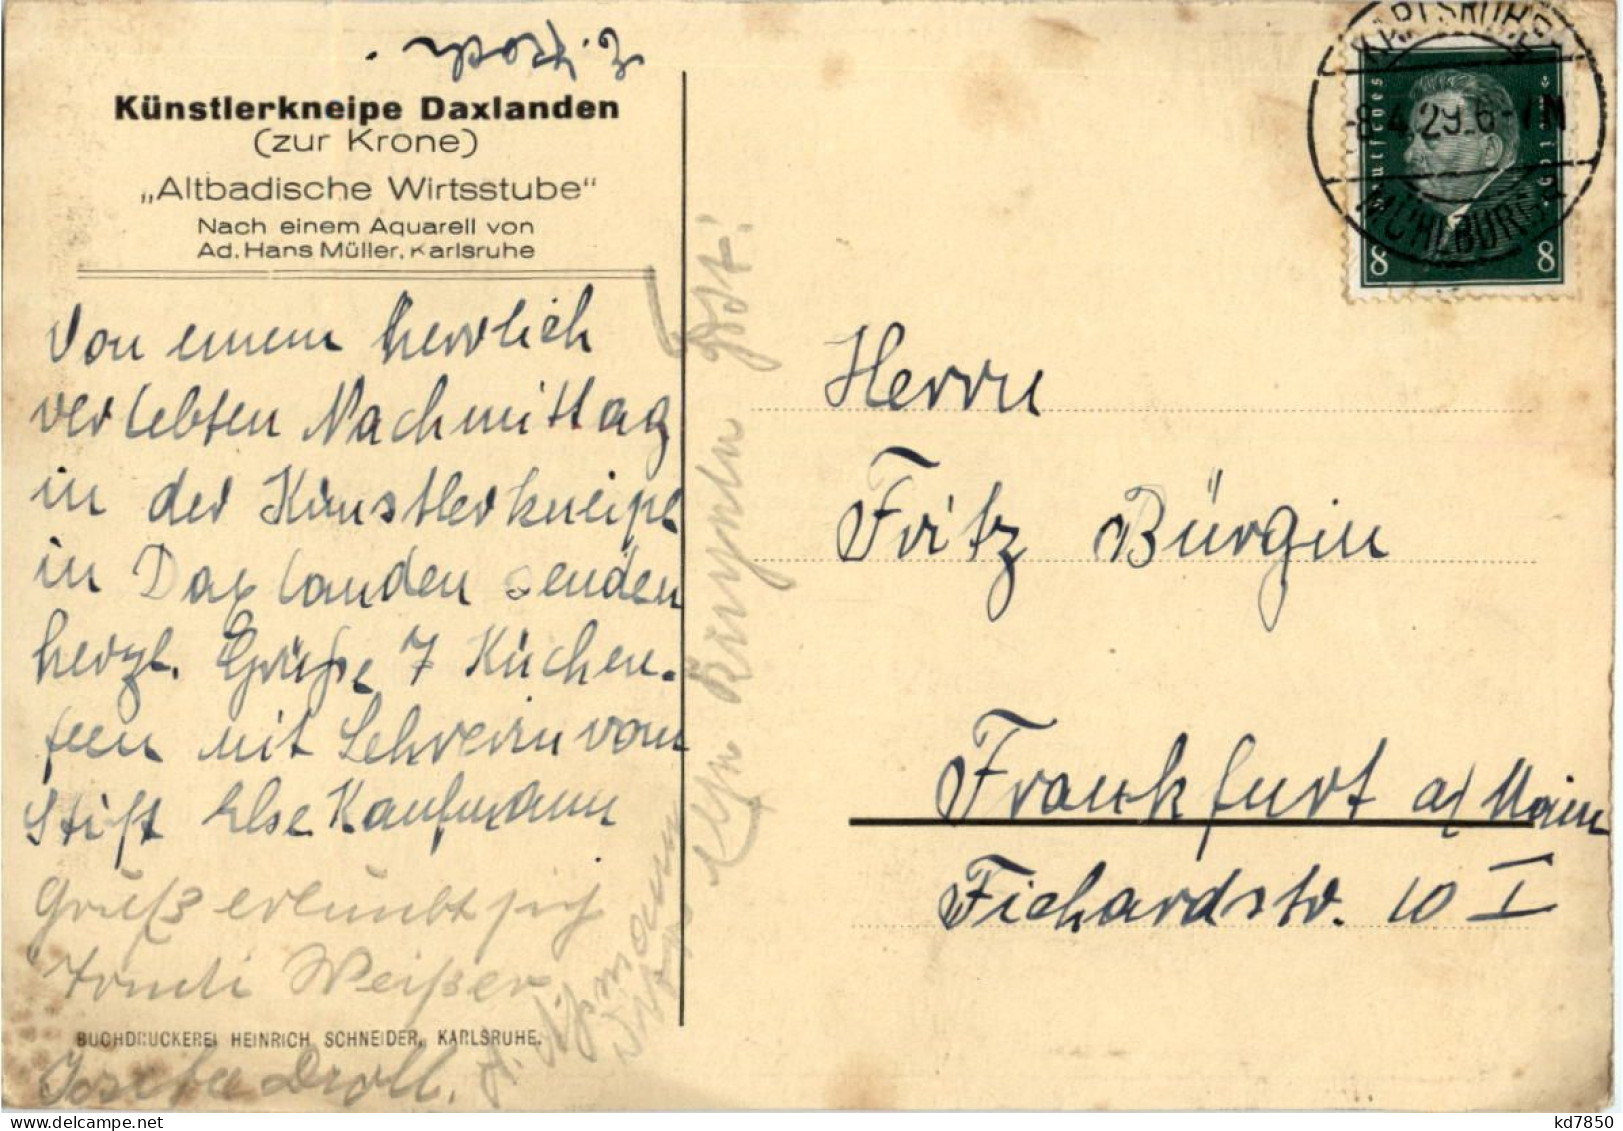 E. Koch.
Künstlerkneipe Daxlanden
(zur Krone)
„Altbadische Wirtsstube"
Nach einem Aquarell von
Ad. Hans Müller, Karlsruhe
Von einem herrlich
verlebten Nachmittag
in der Künstlerkneipe
in Daxlanden senden
herzl. Grüße 7 Küchen-
feen mit Lehrerin vom
Stift Else Kaufmann
Gruß erlaubt sich
Trudi Weißer
BUCHDRUCKEREI HEINRICH SCHNEIDER, KARLSRUHE.
Josefa Droll.
KARLSRUHE
-8.4.29.6-7N
MÜHLBURG
Deutsches Reich
8 8
Herrn
Fritz Bürgin
Frankfurt a/Main
Fichardstr. 10 I
kd7850